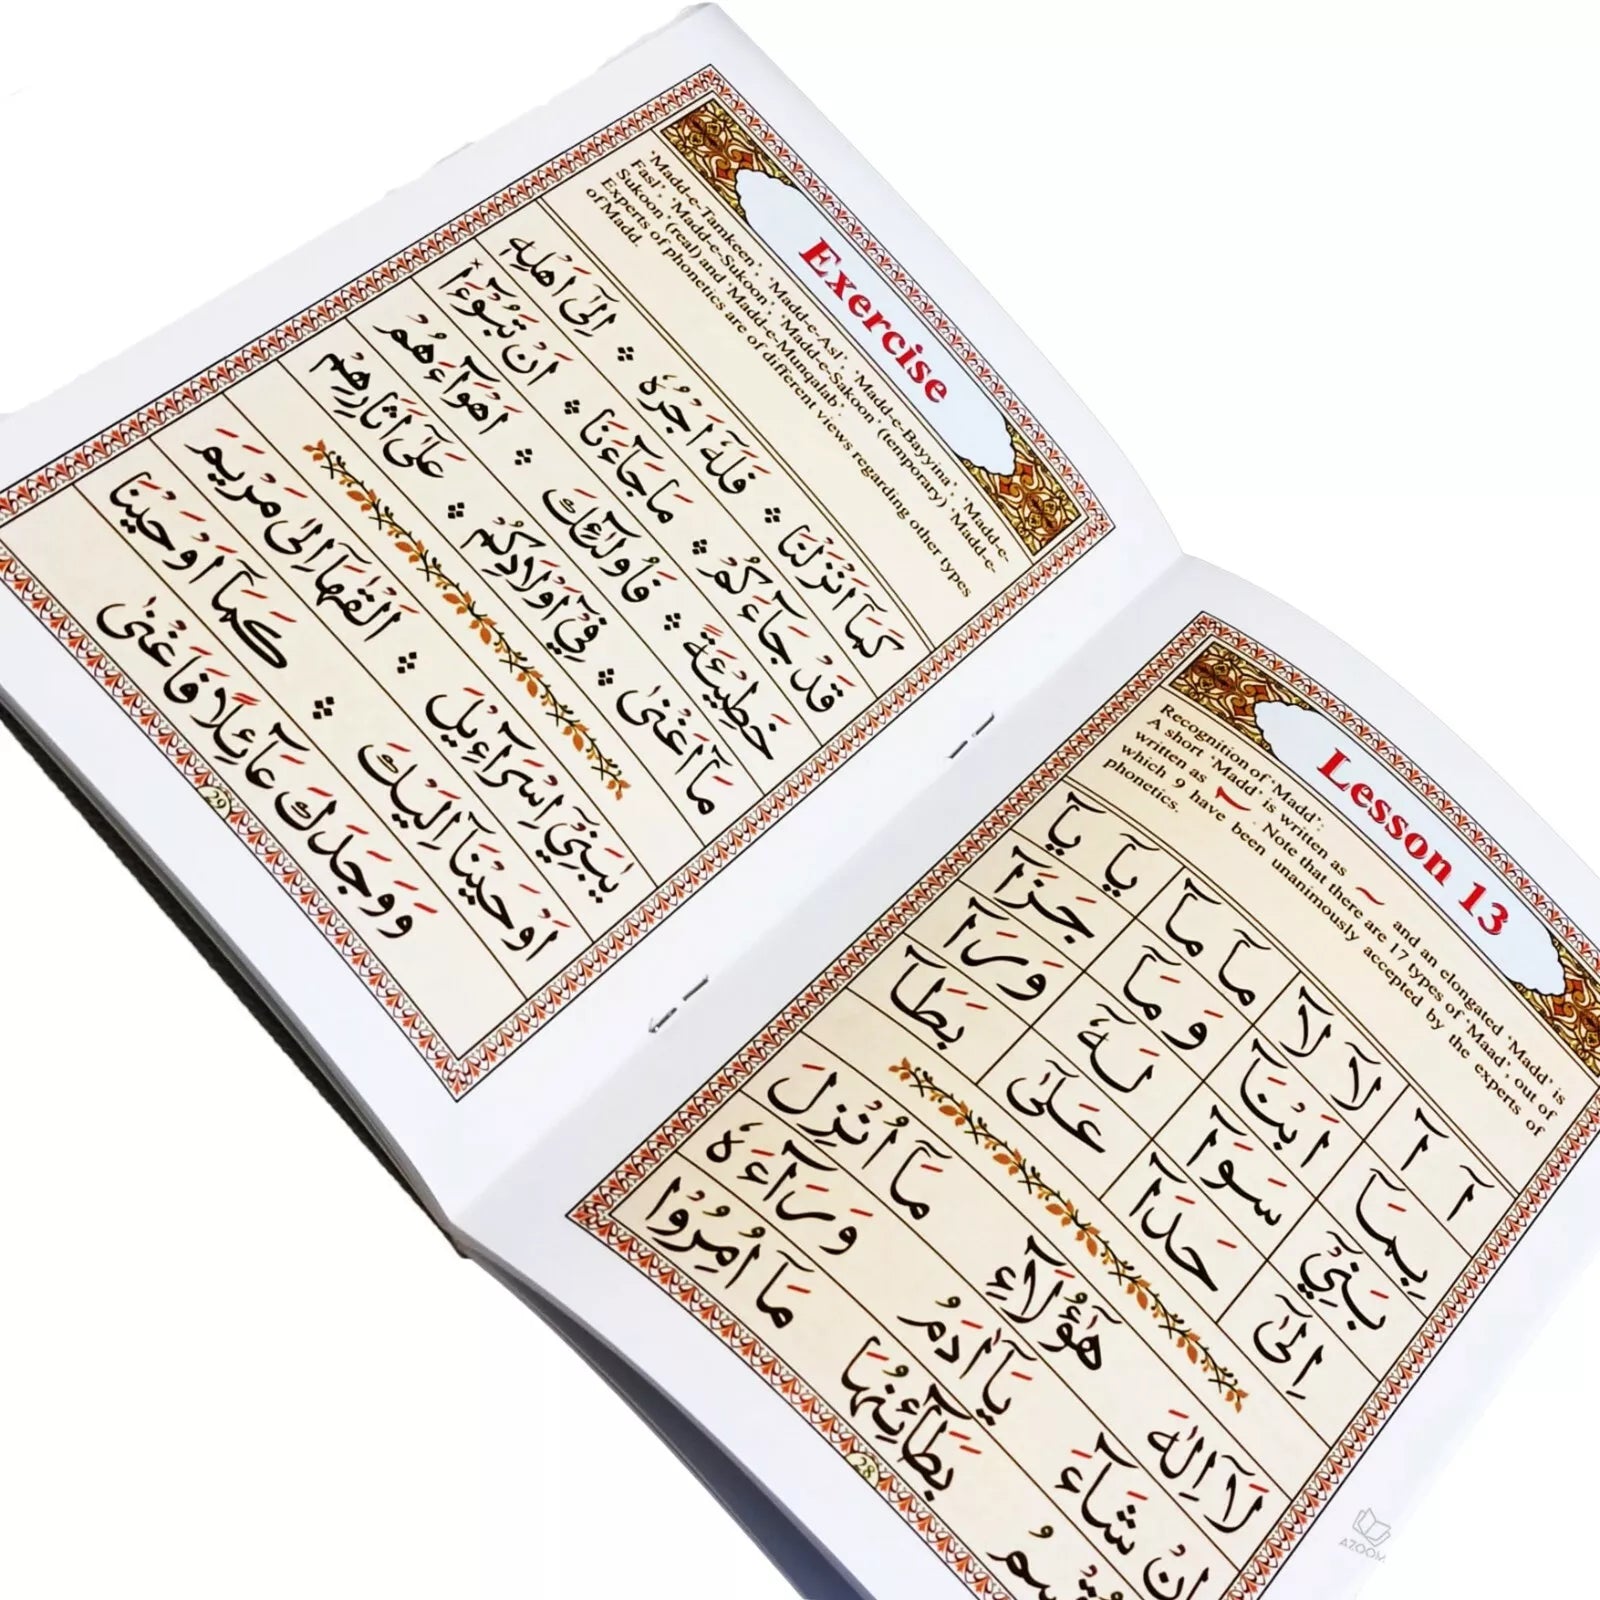 Lesson 13
Recognition of 'Madd':
A short 'Madd' is written as ~ and an elongated 'Madd' is
written as ~ . Note that there are 17 types of 'Maad', out of
which 9 have been unanimously accepted by the experts of
phonetics.
آ آ لَآ لَآ مَآ مَآ يَآ يَآ
بِمَآ اَبْنَآ وَمَآ جَزَآ
بَنِيْٓ سَوَآ لَهٗٓ وَرَآ
اِلٰٓى حَدَآ عَلٰٓى بَطَآ
لَآ اِلٰهَ هٰٓؤُلَآءِ مَآ اُنْزِلَ
اِنْ شَآءَ يٰٓاٰدَمُ وَرَآءَهٗ
بَطَآئِنُهَا مَآ اُمِرُوْا
28
AZOOM
Exercise
'Madd-e-Tamkeen', 'Madd-e-Asl', 'Madd-e-Bayyina', 'Madd-e-
Fasl', 'Madd-e-Sukoon', 'Madd-e-Sakoon' (temporary) 'Madd-e-
Sukoon' (real) and 'Madd-e-Munqalab'.
Experts of phonetics are of different views regarding other types
of Madd.
كَمَآ اَنْزَلْنَا فَلَهٗٓ اَجْرُهٗ اِلٰٓى اَهْلِهٖ
قَدْ جَآءَكُمْ مَا جَآءَنَا اَنْ تَبُوْٓءَا
خَطِيْٓئَةً فَاُولٰٓئِكَ اَهْوَآءَهُمْ
مَآ اَغْنٰى فِيْٓ اَوْلَادِكُمْ عَلٰٓى اٰثَارِهِمْ
يٰبَنِيْٓ اِسْرَآءِيْلَ اَلْقٰهَآ اِلٰى مَرْيَمَ
اَوْحَيْنَآ اِلَيْكَ كَمَآ اَوْحَيْنَا
وَوَجَدَكَ عَآئِلًا فَاَغْنٰى
29